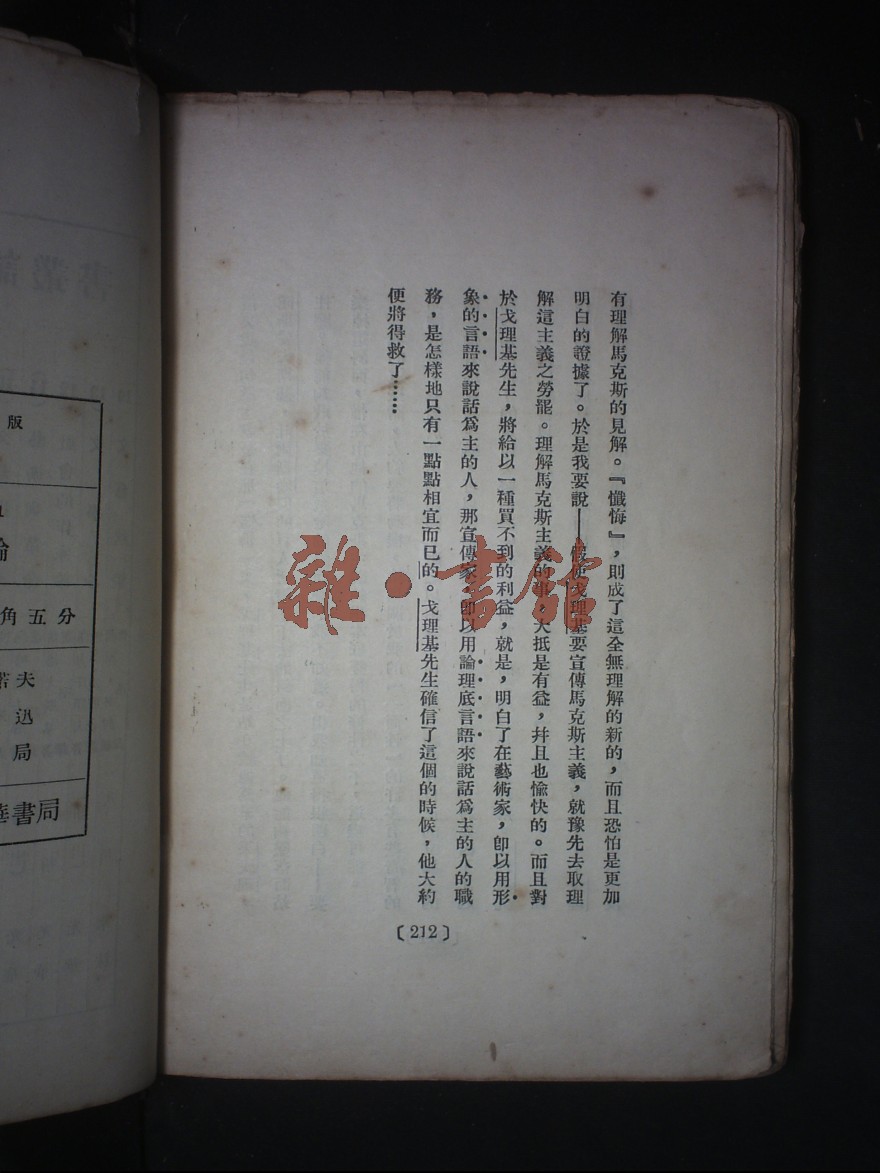 有理解馬克斯的見解。『懺悔』，則成了這全無理解的新的，而且恐怕是更加
明白的證據了。於是我要說——假使戈理基要宣傳馬克斯主義，就豫先去取理
解這主義之勞罷。理解馬克斯主義的事，大抵是有益，幷且也愉快的。而且對
於戈理基先生，將給以一種買不到的利益，就是，明白了在藝術家，卽以用形
象的言語來說話爲主的人，那宣傳家，卽以用論理底言語來說話爲主的人的職
務，是怎樣地只有一點點相宜而已的。戈理基先生確信了這個的時候，他大約
便將得救了……
〔212〕
雜·書館
版
角五分
夫
迅
局
書局